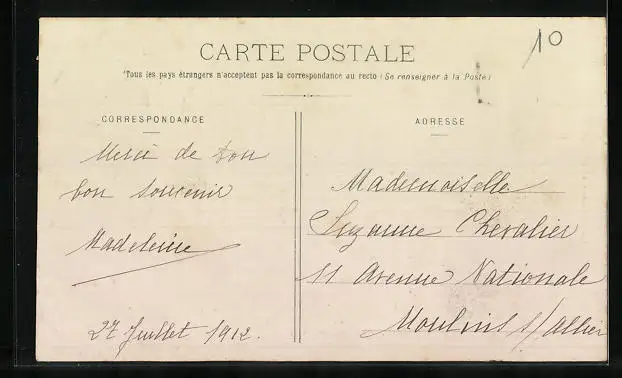 10
CARTE POSTALE
Tous les pays étrangers n'acceptent pas la correspondance au recto (Se renseigner à la Poste)
CORRESPONDANCE
ADRESSE
Merci de ton
bon souvenir
Madeleine
27 Juillet 1912.
Mademoiselle
Suzanne Chevalier
11 Avenue Nationale
Moulins s/Allier